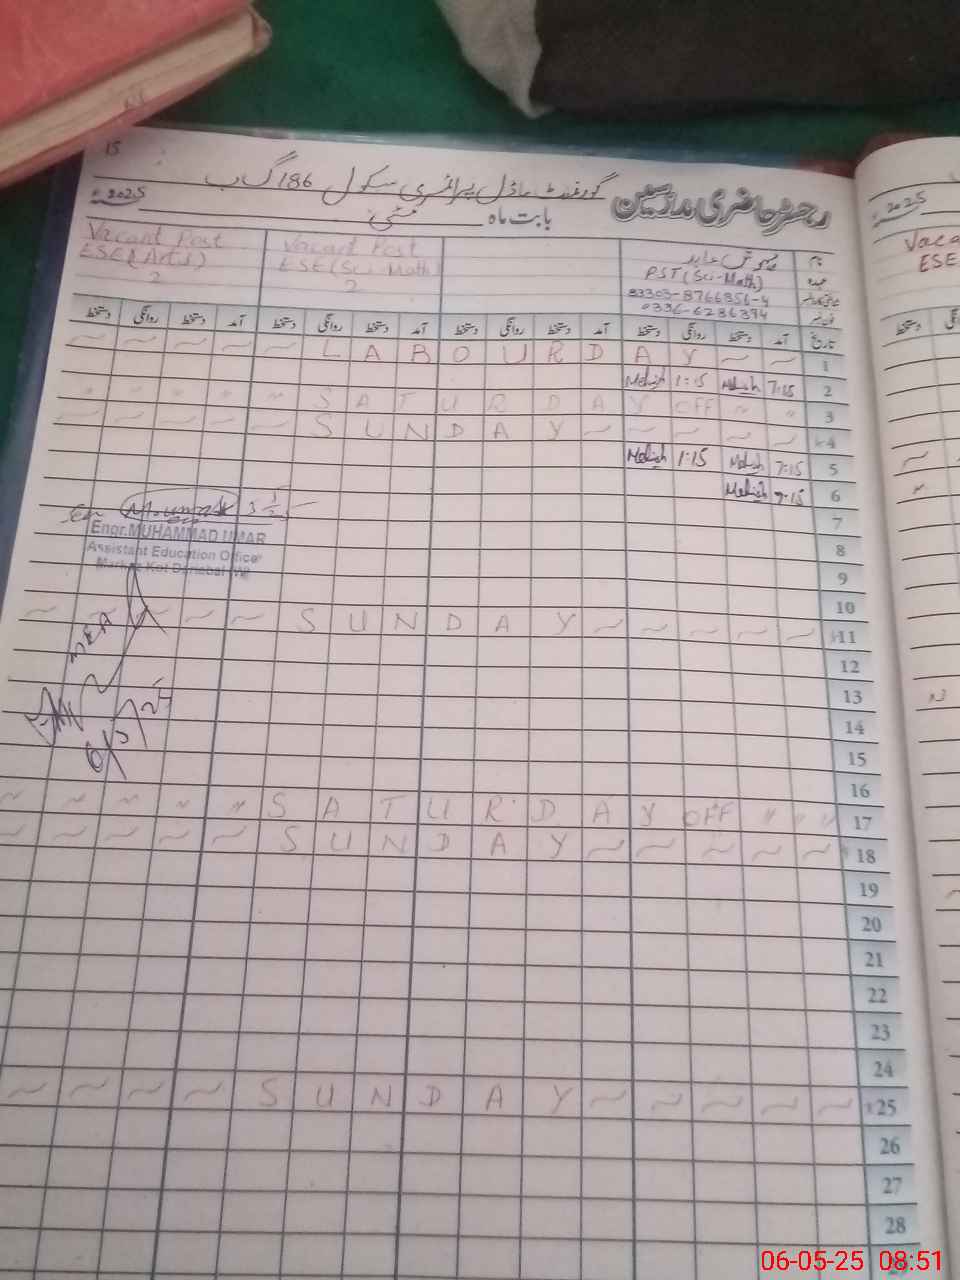 15
گورنمنٹ ماڈل پرائمری سکول 186 گ ب
رجسٹر حاضری مدرسین
بابت ماہ مئی
2025ء
نام
عہدہ
PST (Sci-Math)
33303-8766856-4
0336-6286374
Vacant Post
ESE (Sci-Math)
2
Vacant Post
ESE (Arts)
2
تاریخ آمد دستخط روانگی دستخط آمد دستخط روانگی دستخط آمد دستخط روانگی دستخط آمد دستخط روانگی دستخط
1 LABOUR DAY
2 7:15 1:15
3 SATURDAY OFF
4 SUNDAY
5 7:15 1:15
6 7:15
7
8
9
10
11 SUNDAY
12
13
14
15
16
17 SATURDAY OFF
18 SUNDAY
19
20
21
22
23
24
25 SUNDAY
26
27
28
Engr. MUHAMMAD UMAR
Assistant Education Officer
MEA
2025ء
Vaca
ESE
06-05-25 08:51